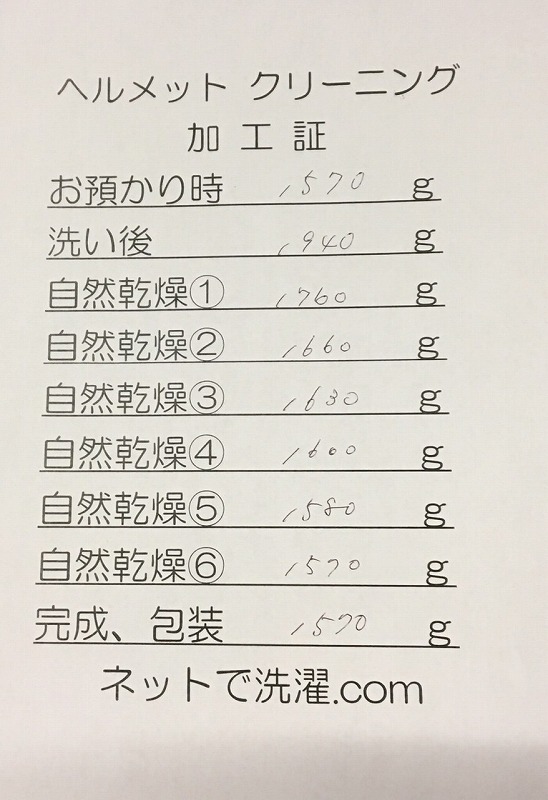 ヘルメット クリーニング
加工証
お預かり時 1570 g
洗い後 1940 g
自然乾燥① 1760 g
自然乾燥② 1660 g
自然乾燥③ 1630 g
自然乾燥④ 1600 g
自然乾燥⑤ 1580 g
自然乾燥⑥ 1570 g
完成、包装 1570 g
ネットで洗濯.com